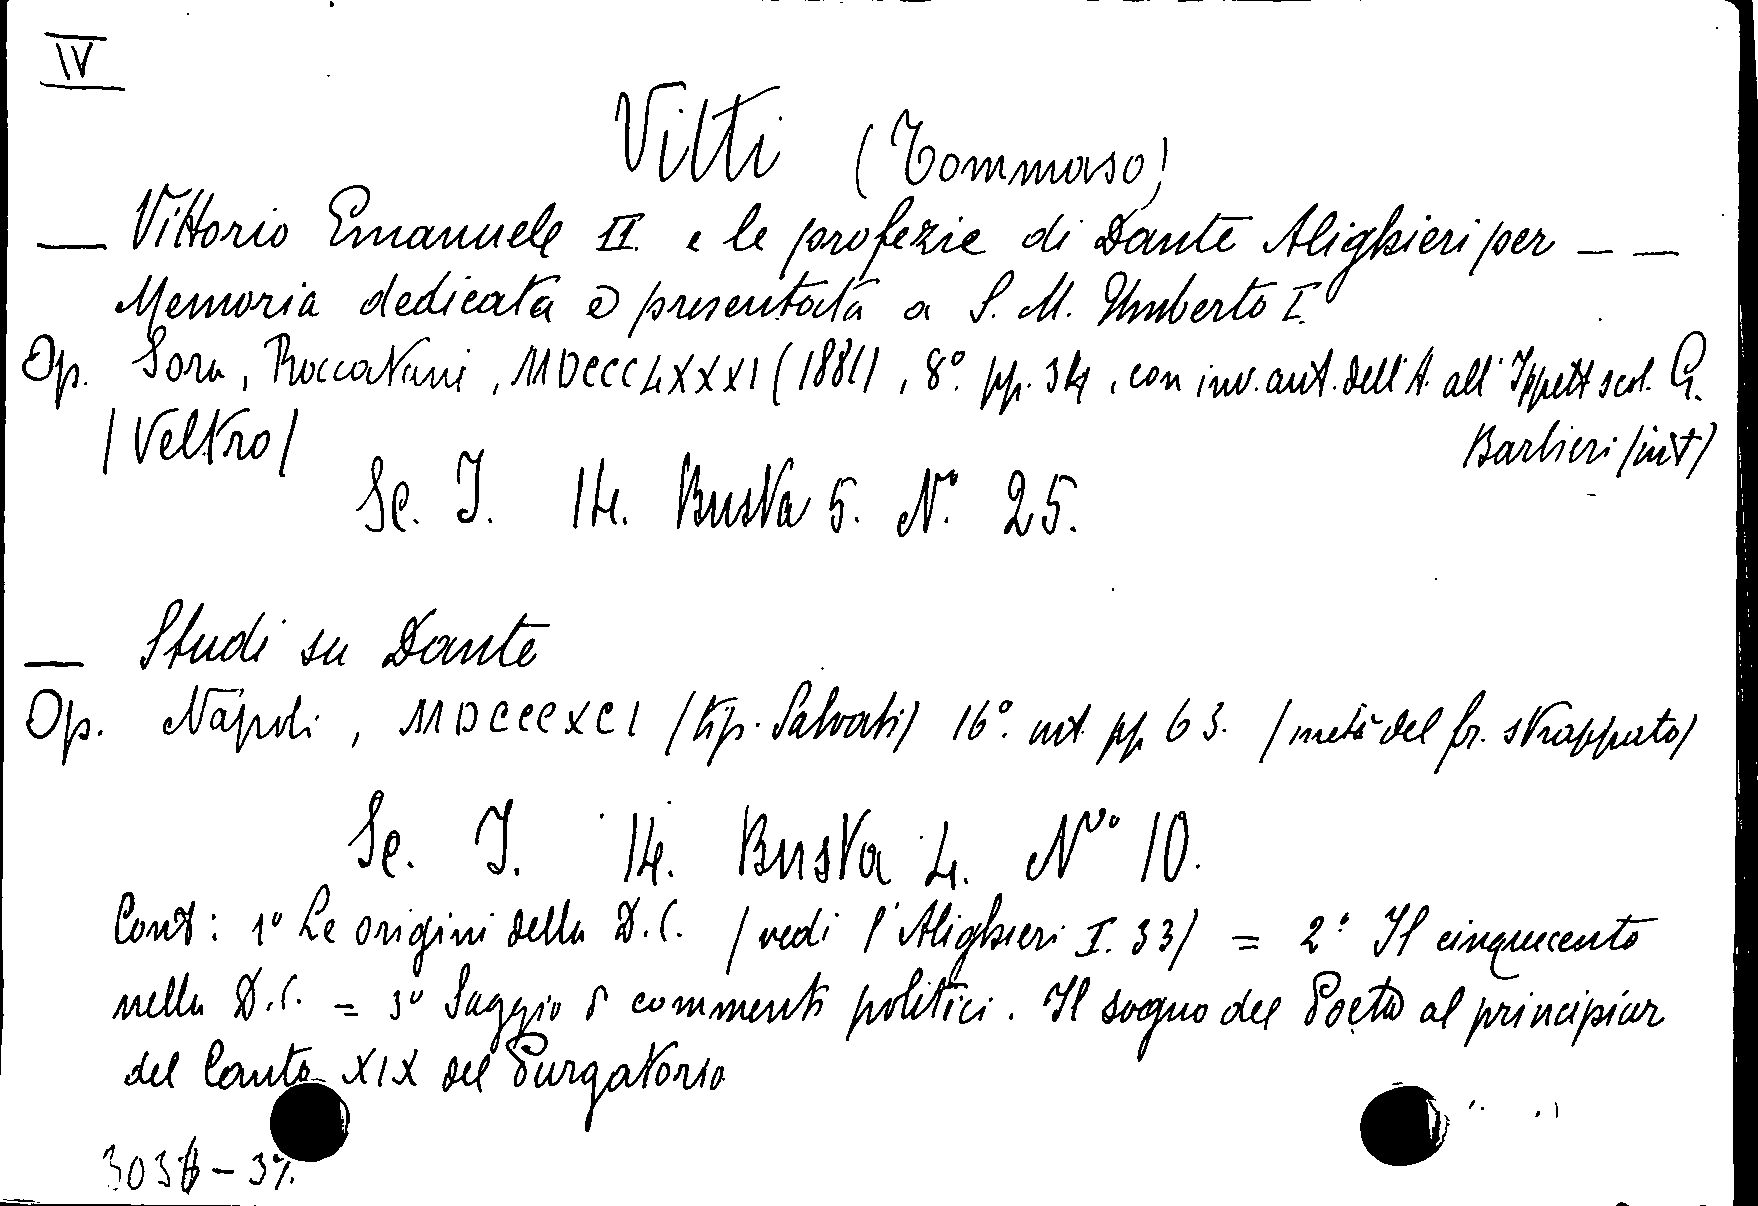 IV
Vitti (Tommaso)
— Vittorio Emanuele II. e le profezie di Dante Alighieri per — —
Memoria dedicata e presentata a S. M. Umberto I.
Op. Sora, Roccatani, MDCCCLXXXI (1881), 8º. pp. 34, con inv. aut. dell'A. all' Ispett scol. G.
(Veltro) Barbieri (int)
Sc. I. 14. Busta 5. Nº. 25.
— Studi su Dante
Op. Napoli, MDCCCXCI (tip. Salvati) 16º. int. pp. 63. (metà del fr. strappato)
Sc. I. 14. Busta 4. Nº 10.
Cont: 1º Le origini della D.C. (vedi l'Alighieri I. 33) = 2º Il cinquecento
nella D.C. = 3º Saggio di commenti politici. Il sogno del Poeta al principiar
del Canto XIX del Purgatorio